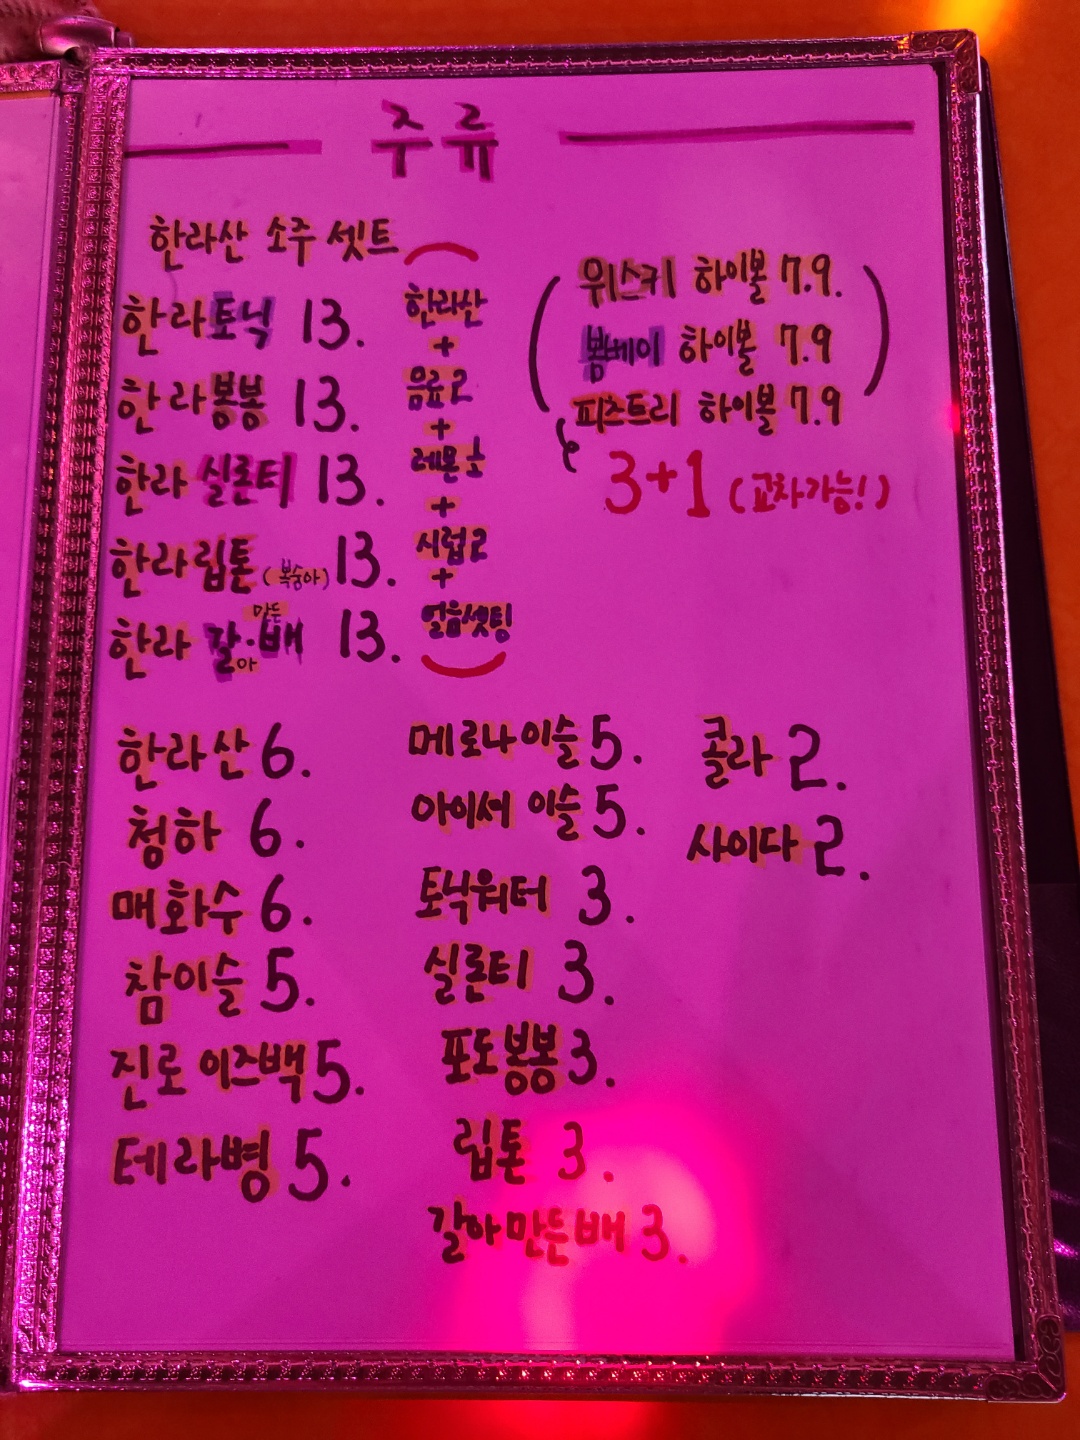 주류
한라산 소주 셋트
한라토닉 13.
한라봉봉 13.
한라 실론티 13.
한라립톤 (복숭아) 13.
한라 갈아만든배 13.
한라산
+
음료2
+
레몬
+
시럽2
+
얼음셋팅
위스키 하이볼 7.9.
봄베이 하이볼 7.9
피츠트리 하이볼 7.9
3+1 (교차가능!)
한라산 6.
청하 6.
매화수 6.
참이슬 5.
진로 이즈백 5.
테라병 5.
메로나이슬 5.
아이셔 이슬 5.
토닉워터 3.
실론티 3.
포도봉봉 3.
립톤 3.
갈아만든배 3.
콜라 2.
사이다 2.